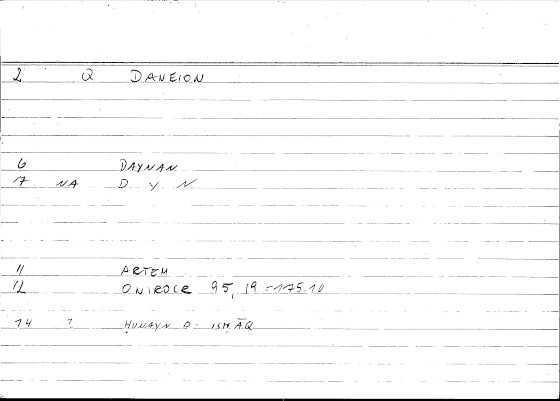 2 Q DANEION
6 DAYNAN
7 NA D Y N
11 ARTEM
12 ONIROCR 95, 19 = 175.10
14 ? ḤUNAYN B. ISḤĀQ